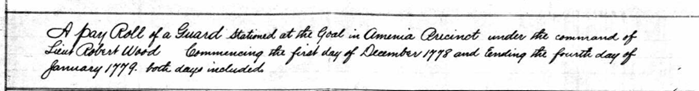 A Pay Roll of a Guard stationed at the Goal in Amenia Precinct under the command of
Lieut Robert Wood Commencing the first day of December 1778 and Ending the fourth day of
January 1779. both days included